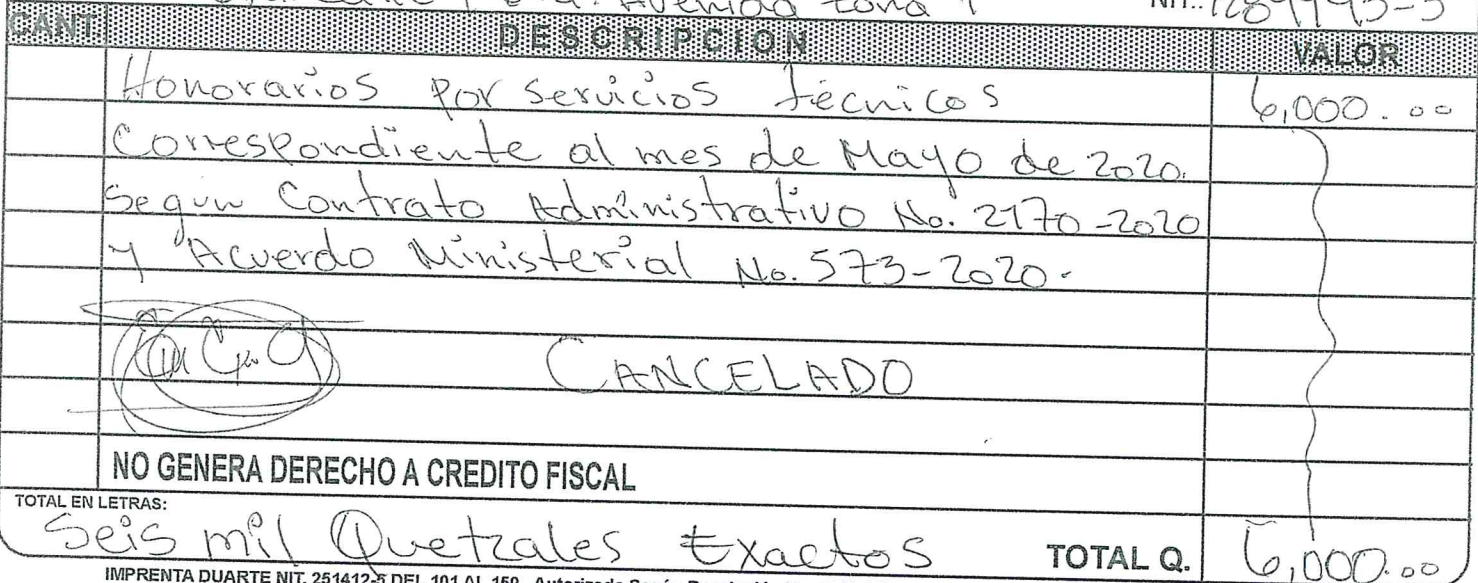 Avenida zona 1 NIT.:
CANT. DESCRIPCION VALOR
Honorarios por Servicios técnicos 6,000.00
Correspondiente al mes de Mayo de 2020.
Segun Contrato Administrativo No. 2170-2020
y Acuerdo Ministerial No. 573-2020.
CANCELADO
NO GENERA DERECHO A CREDITO FISCAL
TOTAL EN LETRAS:
Seis mil Quetzales Exactos TOTAL Q. 6,000.00
IMPRENTA DUARTE NIT. 251412-5 DEL 101 AL 150